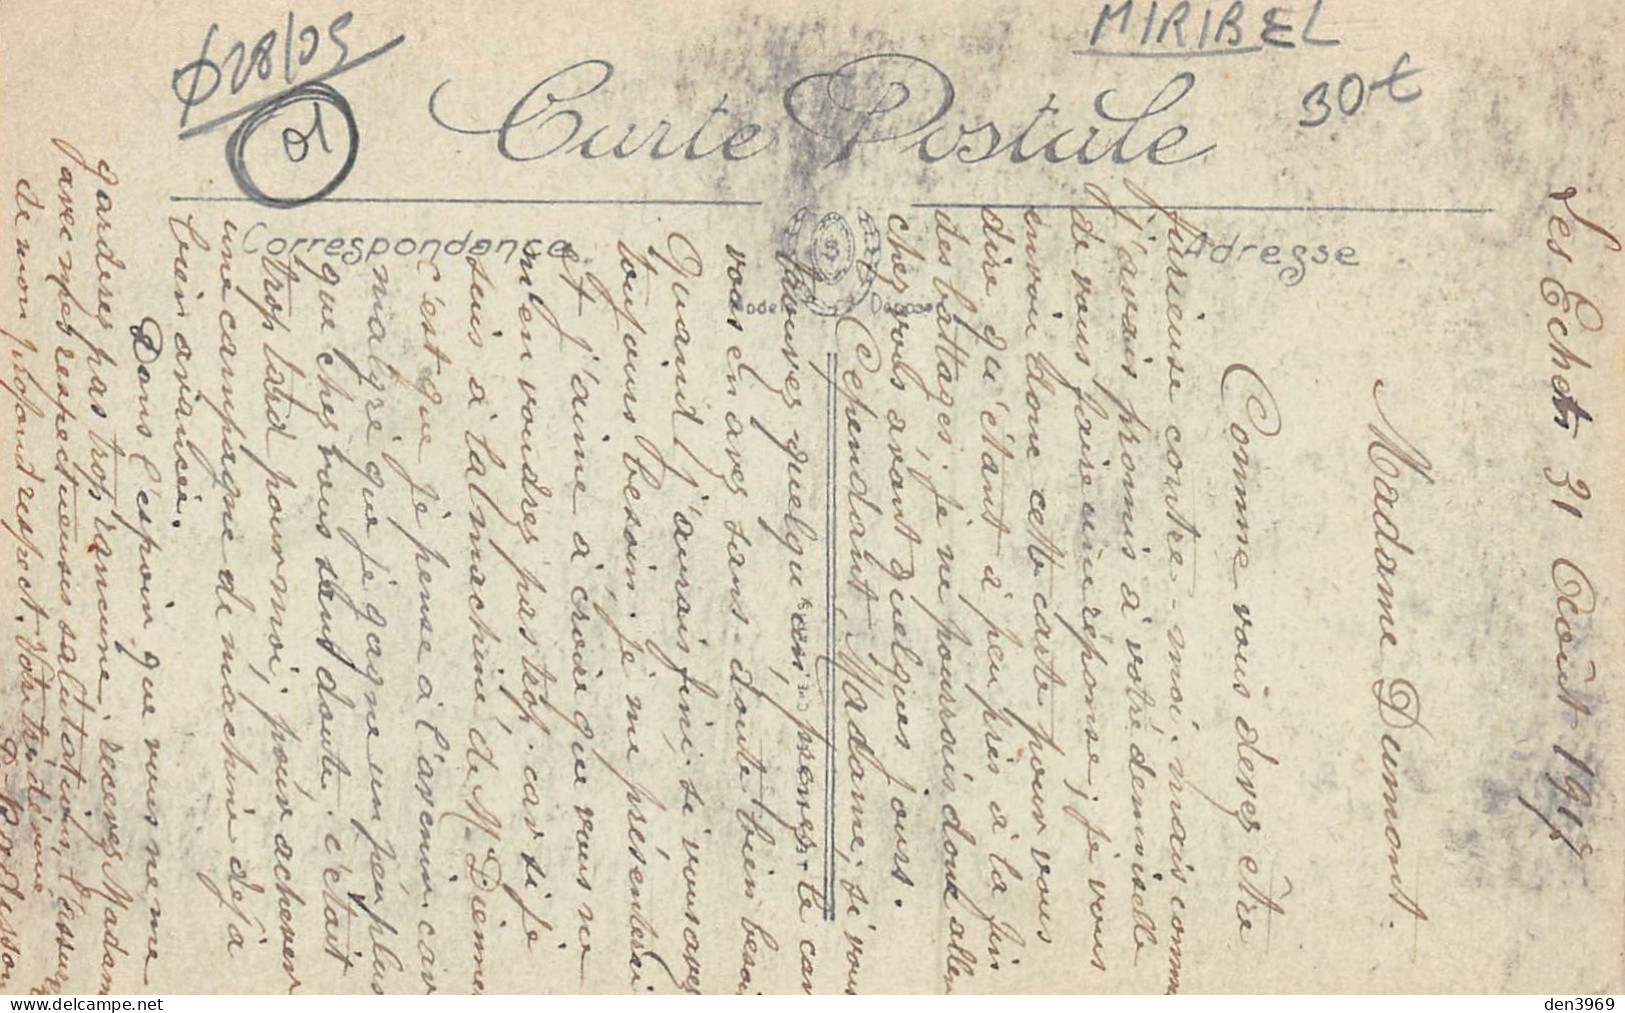 MIRIBEL
30€
01
Carte Postale
Correspondance
Adresse
Les Echets 31 Août 191
Madame Dumont.
Comme vous devez être
furieuse contre-moi. mais comme
j'avais promis à votre demoiselle
de vous faire une réponse, je vous
envoie donc cette carte pour vous
dire qu'étant à peu près à la fin
des battages, je ne pourrais donc aller
chez vous avant quelques jours.
Cependant, Madame, si vous
trouvez quelqu'un prenez-le car
vous en avez sans-doute bien besoin
Quand j'aurais fini, si vous avez
toujours besoin je me présenterai
et j'aime à croire que vous ne
m'en voudrez pas trop. car si je
suis à la machine de Mr Diémer
c'est que je pense à l'avenir car
malgré que je gagne un peu plus
que chez vous sans doute. c'était
trop tard pour moi, pour achever
une campagne de machine déjà
bien avancée.
Dans l'espoir que vous ne me
garderez pas trop rancune, recevez Madame
avec mes respectueuses salutations, l'assurance
de mon profond respect. Votre dévoué
den3969